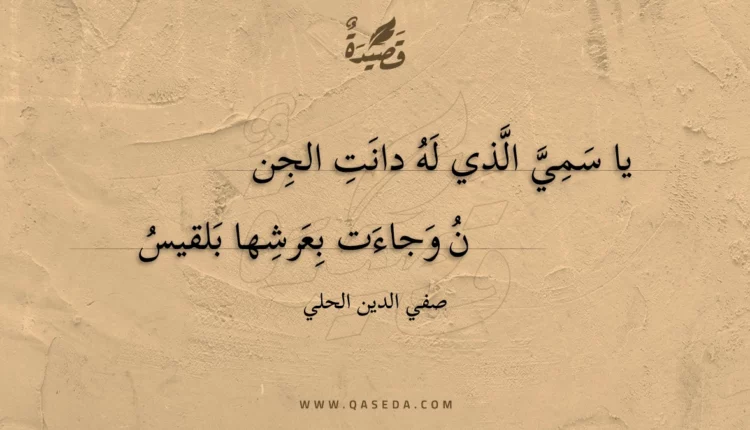 قَصِيدَةٌ
يا سَمِيَّ الَّذي لَهُ دانَتِ الجِن
نُ وَجاءَت بِعَرشِها بَلقيسُ
صفي الدين الحلي
WWW.QASEDA.COM